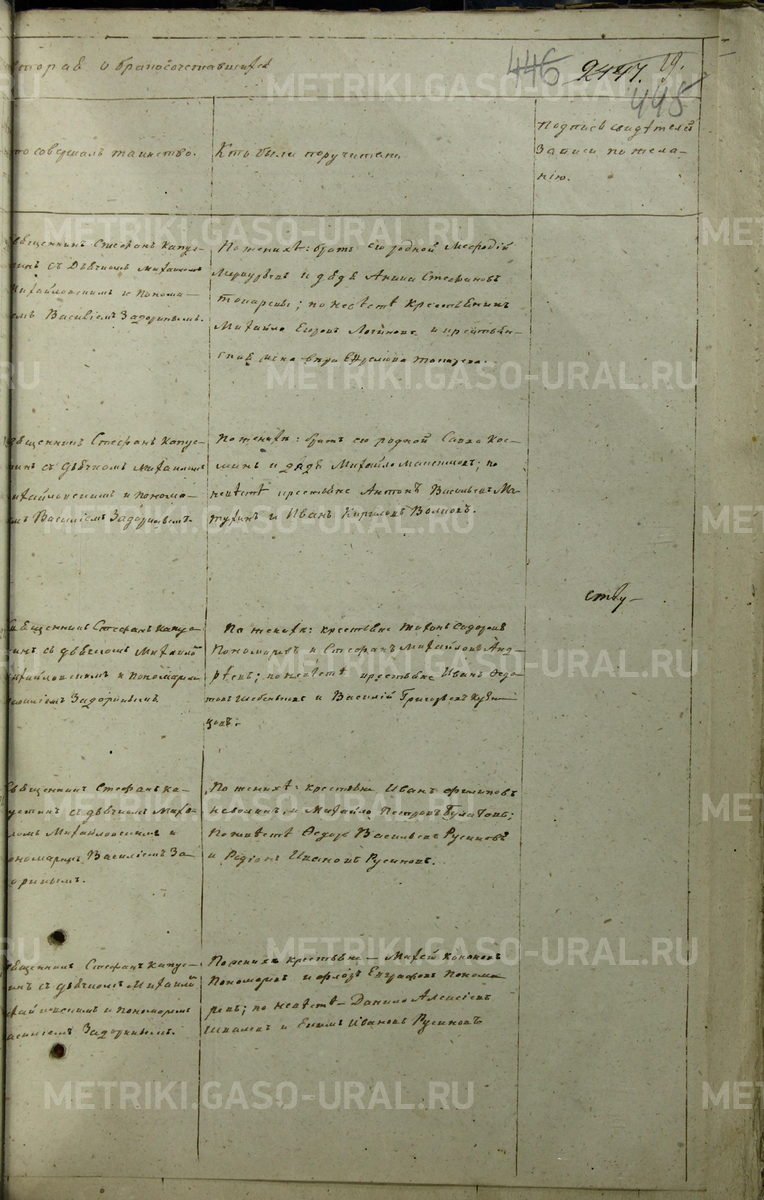 вторая о бракосочетавшихся
446 2447. 19.
445
Кто совершалъ таинство.
Кто были поручители
Подпись свидѣтелей
записи по жела-
нію.
Священникъ Стефанъ Капус-
тинъ съ Дьячкомъ Михаиломъ
Михайловскимъ и Понома-
ремъ Василіемъ Задоринымъ.
По женихѣ: братъ его родной Меѳодій
и дядя Стефановъ
; по невѣстѣ крестьянинъ
Михайло Егоровъ Логиновъ и
Священникъ Стефанъ Капус-
тинъ съ дьячкомъ Михаиломъ
Михайловскимъ и понома-
ремъ Василіемъ Задоринымъ.
По женихѣ: братъ его родной Савва Кос-
минъ и дядя Михайло Максимовъ; по
невѣстѣ крестьяне Антонъ Васильевъ Ма-
тухинъ и Иванъ Кириловъ Волковъ.
ству
Священникъ Стефанъ Капус-
тинъ съ дьячкомъ Михаиломъ
Михайловскимъ и пономаремъ
Василіемъ Задоринымъ
По женихѣ: крестьяне Тихонъ Сидоровъ
Пономаревъ и Стефанъ Михайловъ Анд-
реевъ; по невѣстѣ крестьяне Иванъ Ѳедо-
товъ и Василій Григорьевъ Кузне-
цовъ.
Священникъ Стефанъ Ка-
пустинъ съ дьячкомъ Миха-
ломъ Михайловскимъ и
пономаремъ Василіемъ За-
доринымъ.
По женихѣ: крестьяне Иванъ Филиповъ
Неволинъ и Михайло Петровъ Булатовъ;
по невѣстѣ Ѳедоръ Васильевъ Русиновъ
и Родіонъ Ивановъ Русиновъ.
Священникъ Стефанъ Капус-
тинъ съ дьячкомъ Михаиломъ
Михайловскимъ и пономаремъ
Василіемъ Задоринымъ.
По женихѣ крестьяне – Михей Кононовъ
Пономаревъ и Флоръ Евграфовъ Понома-
ревъ; по невѣстѣ – Данило Алексіевъ
и Ефимъ Ивановъ Русиновъ
METRIKI.GASO-URAL.RU
METRIKI.GASO-URAL.RU
METRIKI.GASO-URAL.RU
METRIKI.GASO-URAL.RU
METRIKI.GASO-URAL.RU
METRIKI.GASO-URAL.RU
METRIKI.GASO-URAL.RU
METRIKI.GASO-URAL.RU